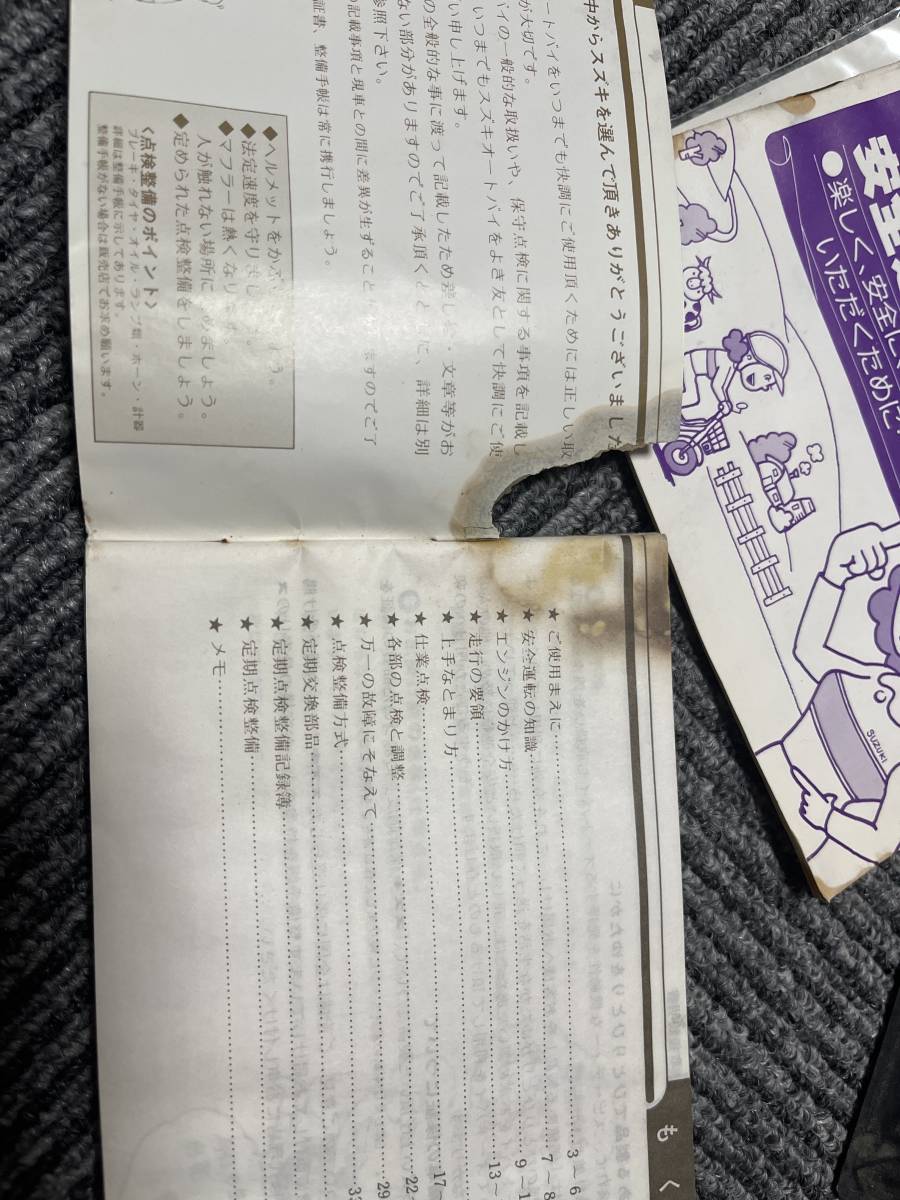 中からスズキを選んで頂きありがとうございました
ートバイをいつまでも快調にご使用頂くためには正しい取
が大切です。
バイの一般的な取扱いや、保守点検に関する事項を記載し
いつまでもスズキオートバイをよき友として快調にご使
い申し上げます。
の全般的な事に渡って記載したため
・文章等がお
ない部分がありますのでご了承頂くと
、詳細は別
参照下さい。
の記載事項と現車との間に差異が生ずること
ますのでご了
証書、整備手帳は常に携行しましょう。
◆ヘルメットをか
う。
◆法定速度を守りま
◆マフラーは熱くな
人が触れない場所に
めましょう。
◆定められた点検整備をしましょう。
〈点検整備のポイント〉
ブレーキ・タイヤ・オイル・ランプ類・ホーン・計器
詳細は整備手帳に示してあります。
整備手帳がない場合は販売店でお求め願います。
もく
★ご使用まえに……3～6
★安全運転の知識……7～8
★エンジンのかけ方……9～1
★走行の要領……13～
★上手なとまり方
★仕業点検……17～
★各部の点検と調整……22
★万一の故障にそなえて……29
★点検整備方式……33
★定期交換部品
★定期点検整備記録簿
★定期点検整備
★メモ
安全
●楽しく、安全に、
いただくために
SUZUKI